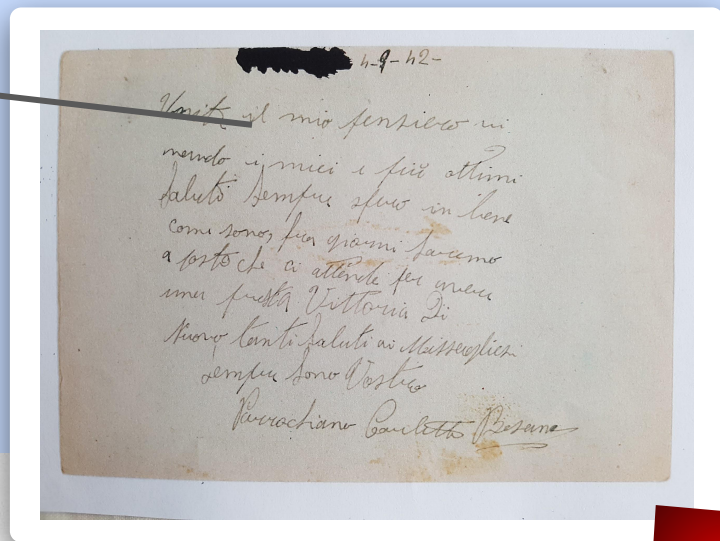 4-9-42-
Unito il mio pensiero vi
mando i miei e più ottimi
saluti sempre spero in bene
come sono, fra giorni saremo
a posto che ci attende per avere
una presta Vittoria Di
Nuovo tanti saluti ai Missagliesi
sempre sono Vostro
Parrochiano Carletto Besana